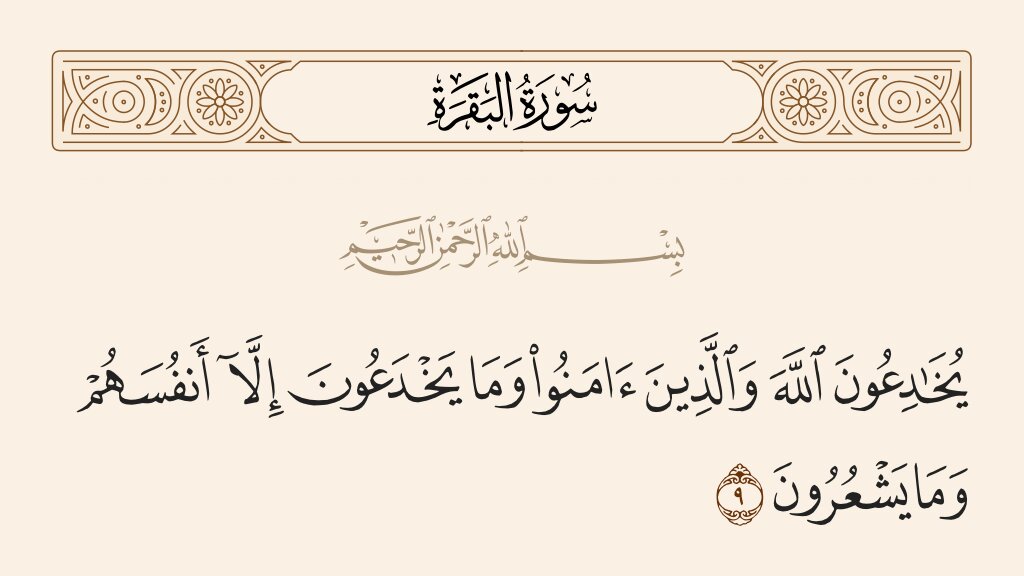 سُورَةُ البَقَرَةِ
بِسْمِ ٱللَّهِ ٱلرَّحْمَٰنِ ٱلرَّحِيمِ
يُخَٰدِعُونَ ٱللَّهَ وَٱلَّذِينَ ءَامَنُوا۟ وَمَا يَخْدَعُونَ إِلَّآ أَنفُسَهُمْ
وَمَا يَشْعُرُونَ ٩